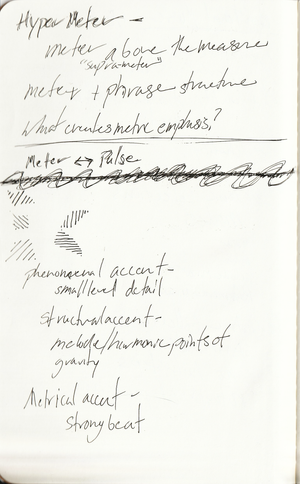 Hyper Meter –
meter above the measure
"supra-meter"
meter + phrase structure
what creates metric emphasis?
Meter ↔ Pulse
phenomenal accent –
small level detail
structural accent –
melodic/harmonic points of
gravity
Metrical accent –
strong beat